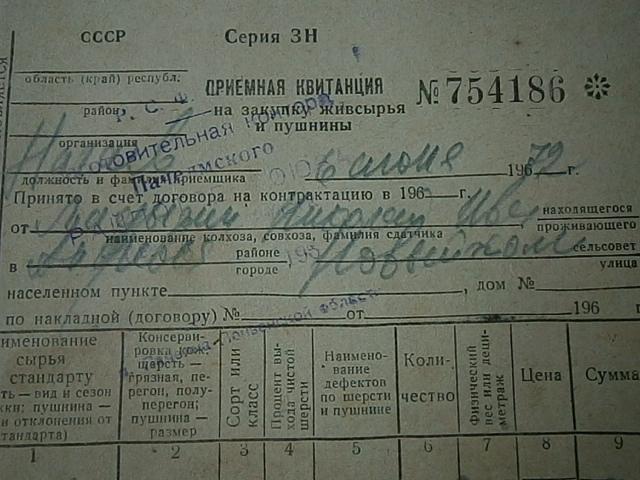 СССР Серия ЗН
область (край) республ.
ПРИЕМНАЯ КВИТАНЦИЯ № 754186
район на закупку живсырья
и пушнины
организация
Р. С. Ф.
контора
Пачелмского
6 июня 1972 г.
должность и фамилия приемщика
Принято в счет договора на контрактацию в 196 г.
от Николай находящегося
наименование колхоза, совхоза, фамилия сдатчика проживающего
в районе сельсовет
городе улица
населенном пункте , дом №
по накладной (договору) № от 196 г
именование сырья стандарту ть — вид и сезон жки: пушнина — и отклонения от тандарта)
Консерви-ровка кож; шерсть — грязная, пе-регон, полу-перегон; пушнина — размер
Сорт или класс
Процент вы-хода чистой шерсти
Наимено-вание дефектов по шерсти и пушнине
Коли-чество
Физический вес или деци-метраж
Цена
Сумма
1 2 3 4 5 6 7 8 9